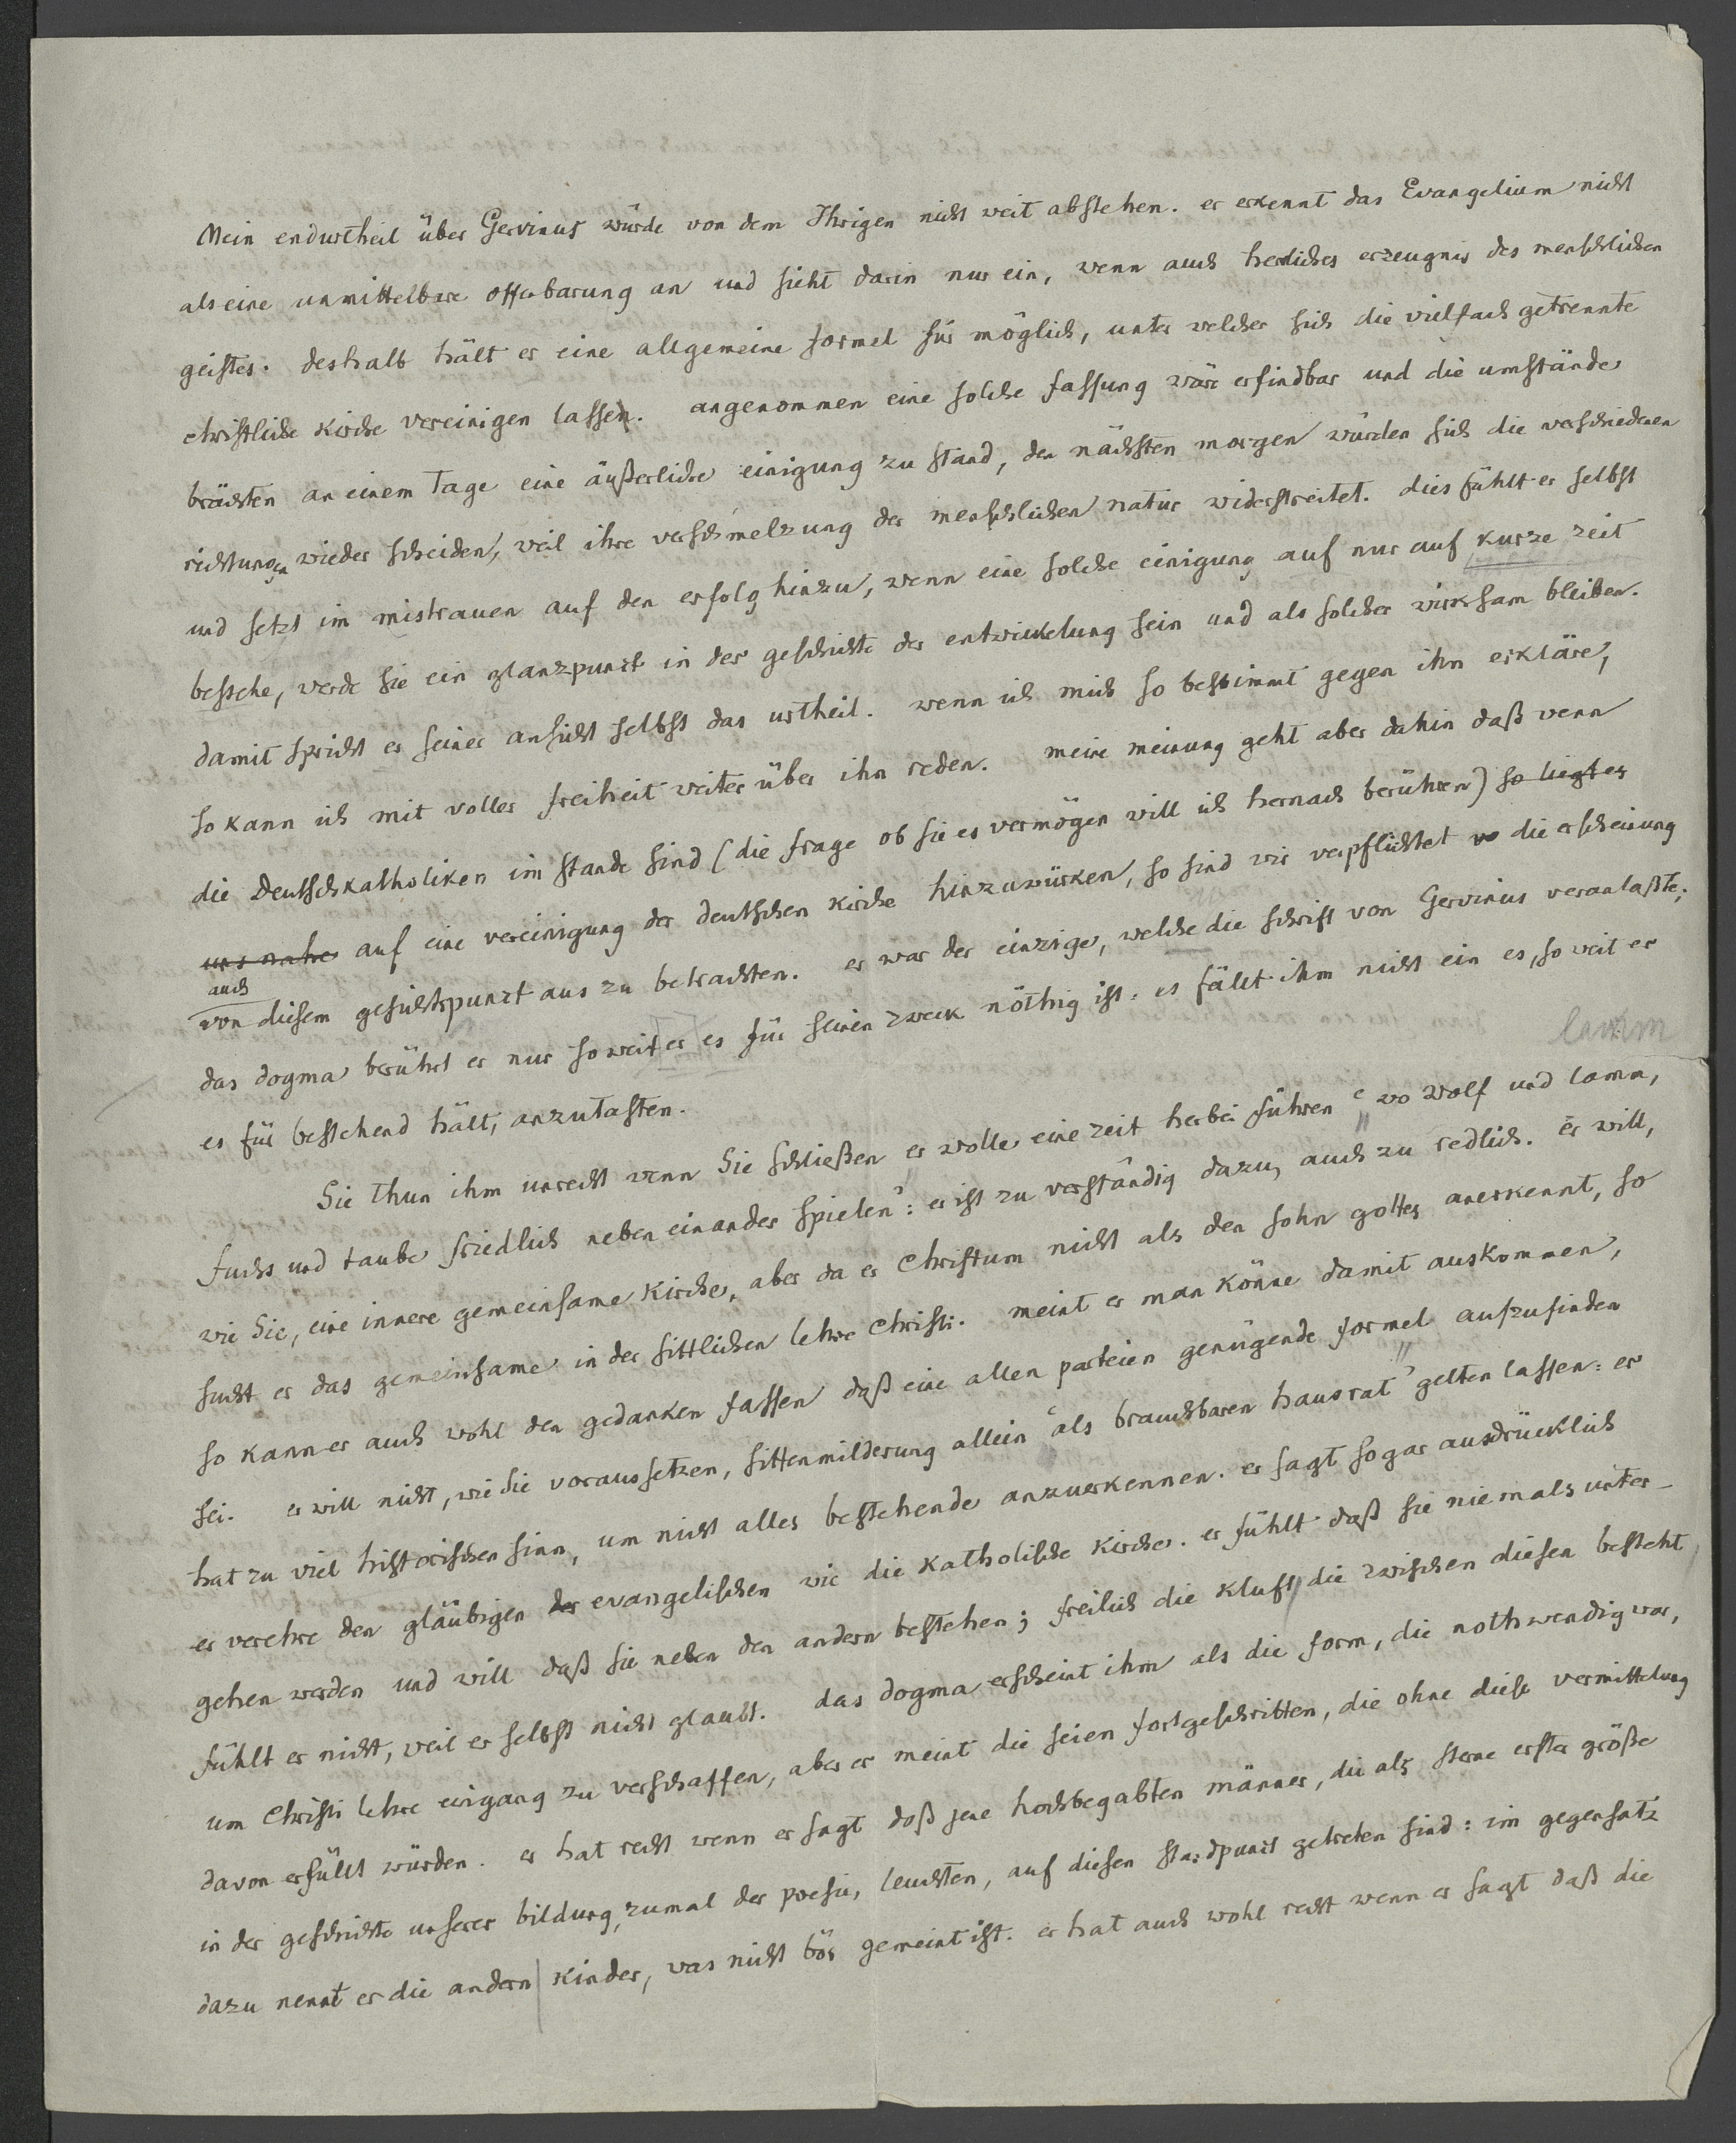 Mein endurtheil über Gervinus würde von dem Ihrigen nicht weit abstehen. er erkennt das Evangelium nicht
als eine unmittelbare offenbarung an und sieht darin nur ein, wenn auch herliches erzeugnis des menschlichen
geistes. deshalb hält er eine allgemeine formel für möglich, unter welcher sich die vielfach getrennte
christliche kirche vereinigen lassen. angenommen eine solche fassung wäre erfindbar und die umstände
brächten an einem tage eine äußerliche einigung zu stand, den nächsten morgen würden sich die verschiedenen
richtungen wieder scheiden, weil ihre verschmelzung der menschlichen natur widerstreitet. dies fühlt er selbst
und setzt im mistrauen auf den erfolg hinzu, wenn eine solche einigung auf nur auf kurze zeit
bestehe, werde sie ein glanzpunct in der geschichte der entwickelung sein und als solcher wirksam bleiben.
damit spricht er seiner ansicht selbst das urtheil. wenn ich mich so bestimmt gegen ihn erkläre,
so kann ich mit voller freiheit weiter über ihn reden. meine meinung geht aber dahin daß wenn
die Deutschkatholiken im stande sind (die frage ob sie es vermögen will ich hernach berühren) so liegt es
uns nahe auf eine vereinigung der deutschen kirche hinzuwürken, so sind wir verpflichtet die erscheinung
auch
von diesem gesichtspunct aus zu betrachten. er war der einzige, welche die schrift von Gervinus veranlaßte;
das dogma berührt er nur soweit er es für seinen zweck nöthig ist: es fällt ihm nicht ein es, so weit er
lamm
es für bestehend hält, anzutasten.
Sie thun ihm unrecht wenn Sie schließen er wolle eine zeit herbei führen "wo wolf und lamm,
fuchs und taube friedlich neben einander spielen": er ist zu verständig dazu, auch zu redlich. er will,
wie Sie, eine innere gemeinsame kirche, aber da er Christum nicht als den sohn gottes anerkennt, so
sucht er das gemeinsame in der sittlichen lehre Christi. meint er man könne damit auskommen,
so kann er auch wohl den gedanken fassen daß eine allen parteien genügende formel aufzufinden
sei. er will nicht, wie Sie voraussetzen, sittenmilderung allein "als brauchbaren hausrat" gelten lassen: er
hat zu viel historischen sinn, um nicht alles bestehende anzuerkennen. er sagt sogar ausdrücklich
er verehre den gläubigen der evangelischen wie die katholische kirche. er fühlt daß sie niemals unter-
gehen werden und will daß sie neben den andern bestehen; freilich die kluft, die zwischen diesen besteht,
fühlt er nicht, weil er selbst nicht glaubt. das dogma erscheint ihm als die form, die nothwendig war,
um Christi lehre eingang zu verschaffen, aber er meint die seien fortgeschritten, die ohne diese vermittelung
davon erfüllt würden. er hat recht wenn er sagt daß jene hochbegabten männer, die als sterne erster größe
in der geschichte unserer bildung, zumal der poesie, leuchten, auf diesen standpunct getreten sind: im gegensatz
dazu nennt er die andern kinder, was nicht bös gemeint ist. er hat auch wohl recht wenn er sagt daß die